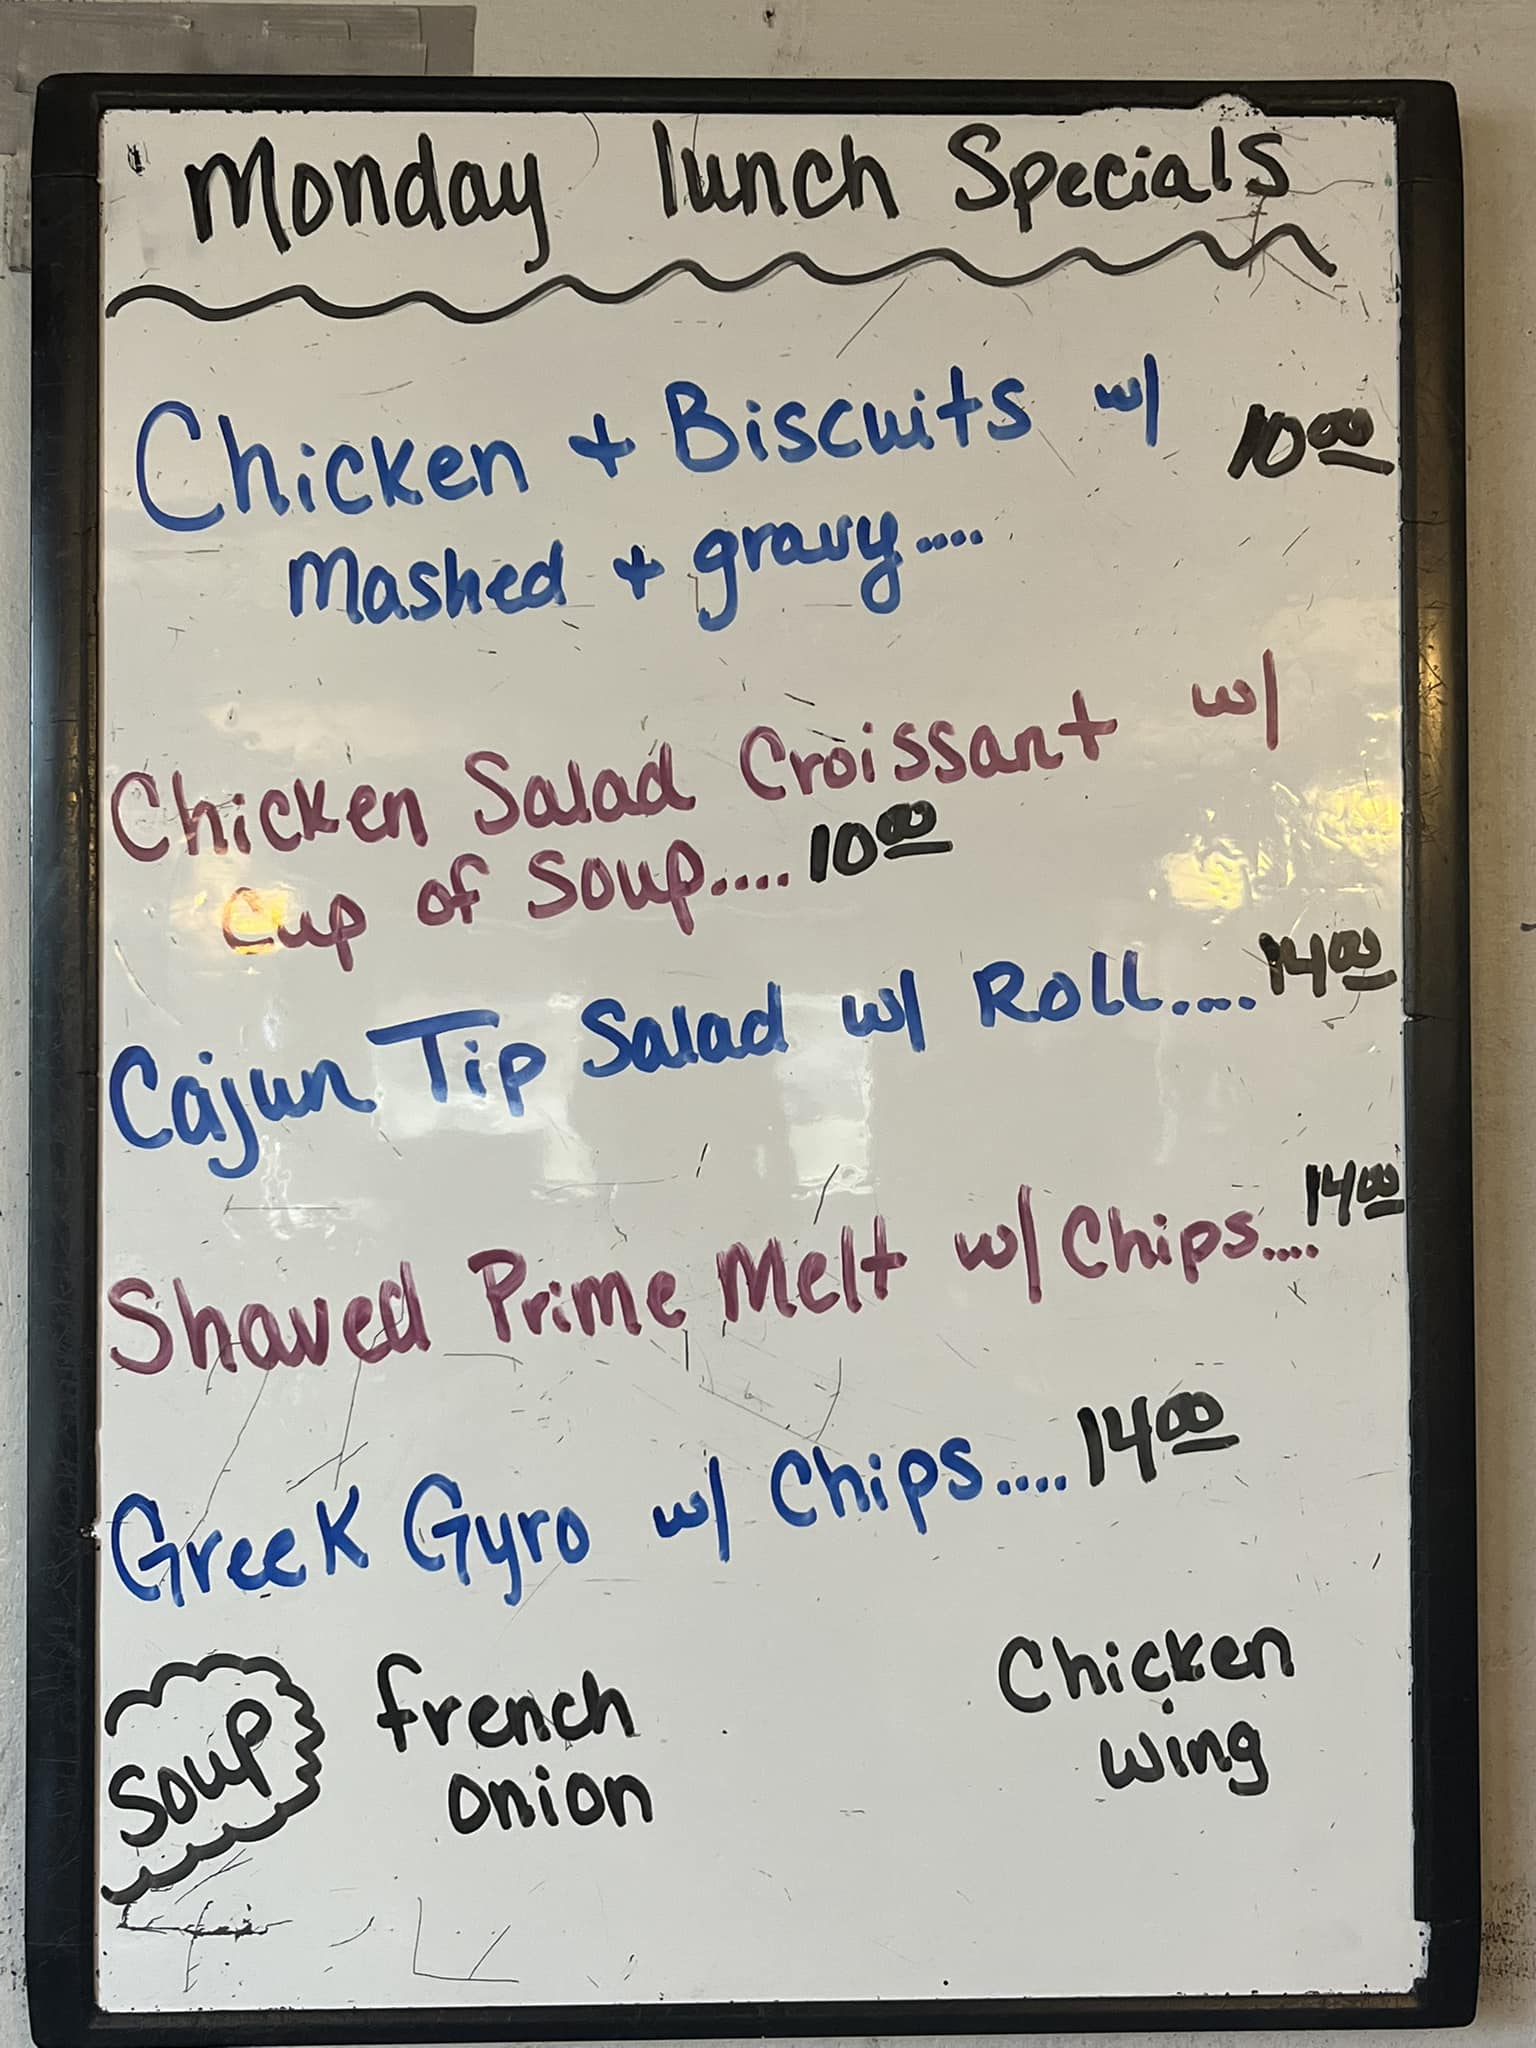 Monday lunch Specials
Chicken + Biscuits w/ 10.00
Mashed + gravy....
Chicken Salad Croissant w/
Cup of Soup.... 10.00
Cajun Tip Salad w/ Roll.... 14.00
Shaved Prime Melt w/ Chips.... 14.00
Greek Gyro w/ Chips.... 14.00
Soup french onion Chicken wing